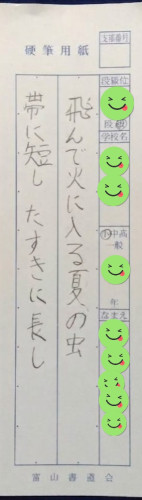 硬筆用紙
支部番号
段級位
段級
学校名
小中高
一般
年
なまえ
飛んで火に入る夏の虫
帯に短し たすきに長し
富山書道会